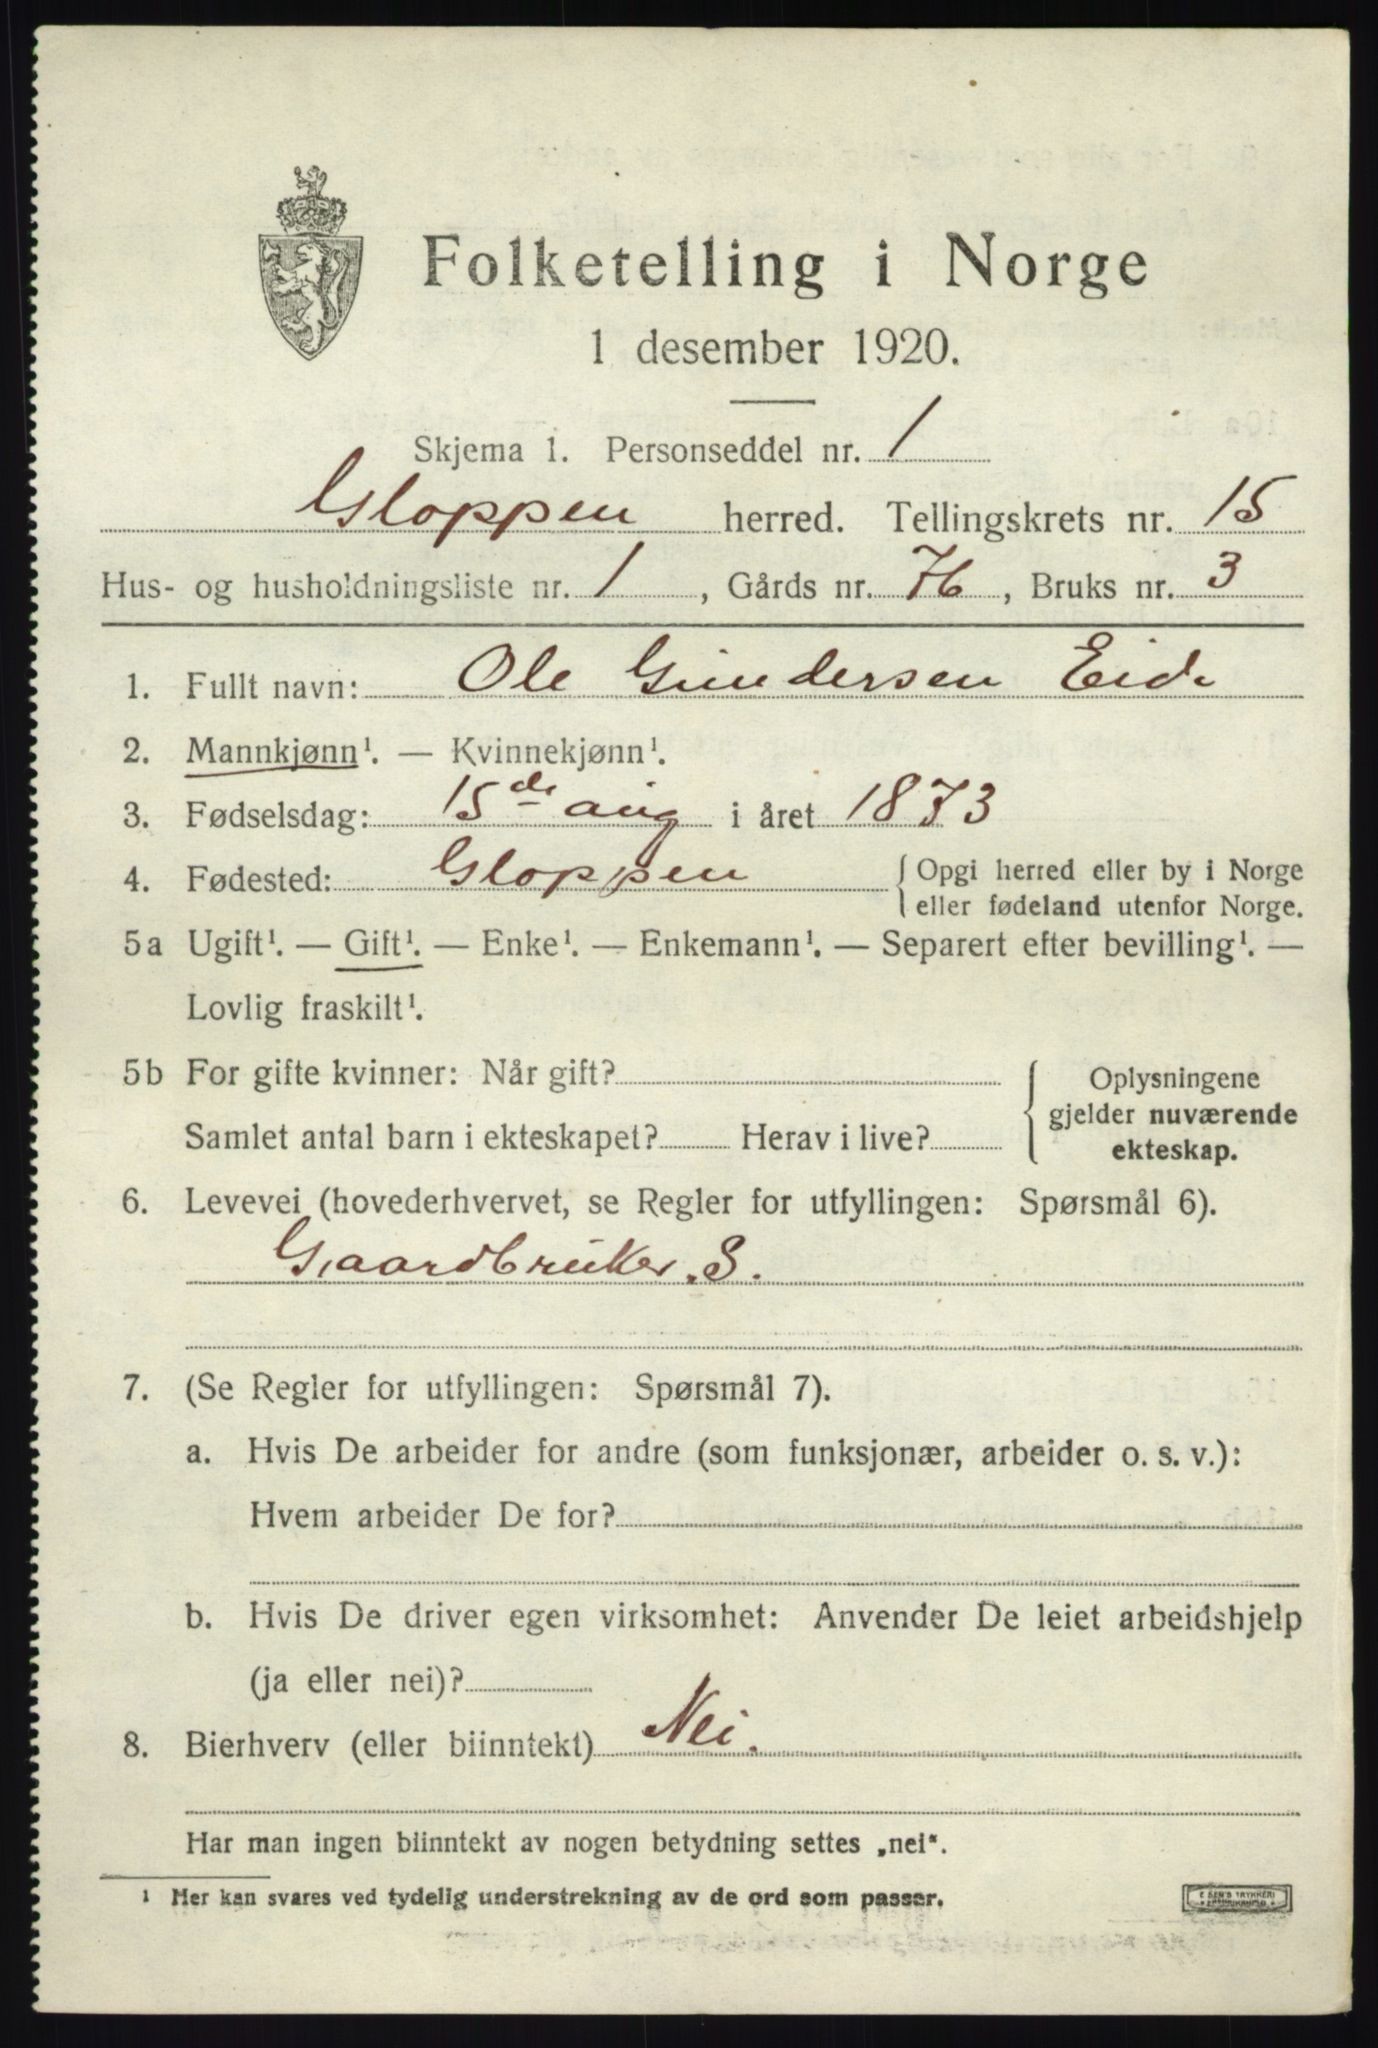 Folketelling i Norge
1 desember 1920.
Skjema 1. Personseddel nr. 1
Gloppen herred. Tellingskrets nr. 15
Hus- og husholdningsliste nr. 1, Gårds nr. 76, Bruks nr. 3
1. Fullt navn: Ole Gundersen Eide
2. Mannkjønn¹. — Kvinnekjønn¹.
3. Fødselsdag: 15de aug i året 1873
4. Fødested: Gloppen { Opgi herred eller by i Norge
eller fødeland utenfor Norge.
5a Ugift¹. — Gift¹. — Enke¹. — Enkemann¹. — Separert efter bevilling¹. —
Lovlig fraskilt¹.
5b For gifte kvinner: Når gift? { Oplysningene
gjelder nuværende
Samlet antal barn i ekteskapet? Herav i live? ekteskap.
6. Levevei (hovederhvervet, se Regler for utfyllingen: Spørsmål 6).
Gaardbruker. S.
7. (Se Regler for utfyllingen: Spørsmål 7).
a. Hvis De arbeider for andre (som funksjonær, arbeider o. s. v.):
Hvem arbeider De for?
b. Hvis De driver egen virksomhet: Anvender De leiet arbeidshjelp
(ja eller nei)?
8. Bierhverv (eller biinntekt) Nei.
Har man ingen biinntekt av nogen betydning settes „nei“.
¹ Her kan svares ved tydelig understrekning av de ord som passer.